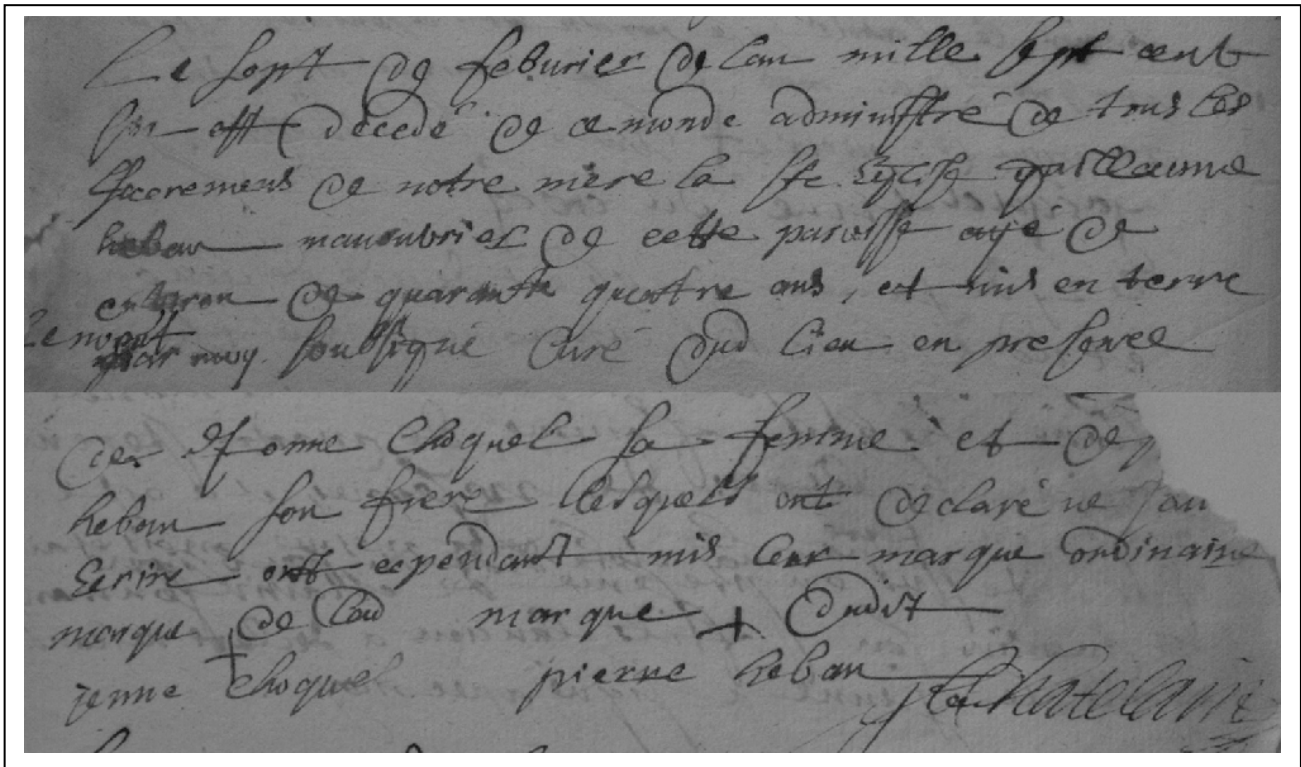 Le sept de feburier de lan mille sept cent
est decedé de ce monde administré de tous les
sacremens de notre mere la ste Eglise guillaume
heban manouvrier de cette paroisse agé de
environ de quarante quattre ans, et mis en terre
par moy soussigné Curé dud lieu en presence
de jenne Choquel sa femme et de
heban son frere lesquels ont declaré ne
Ecrire ont cependant mis leur marque ordinaire
marque de lad marque + dudit
jenne + Choquel pierre heban Chatelain